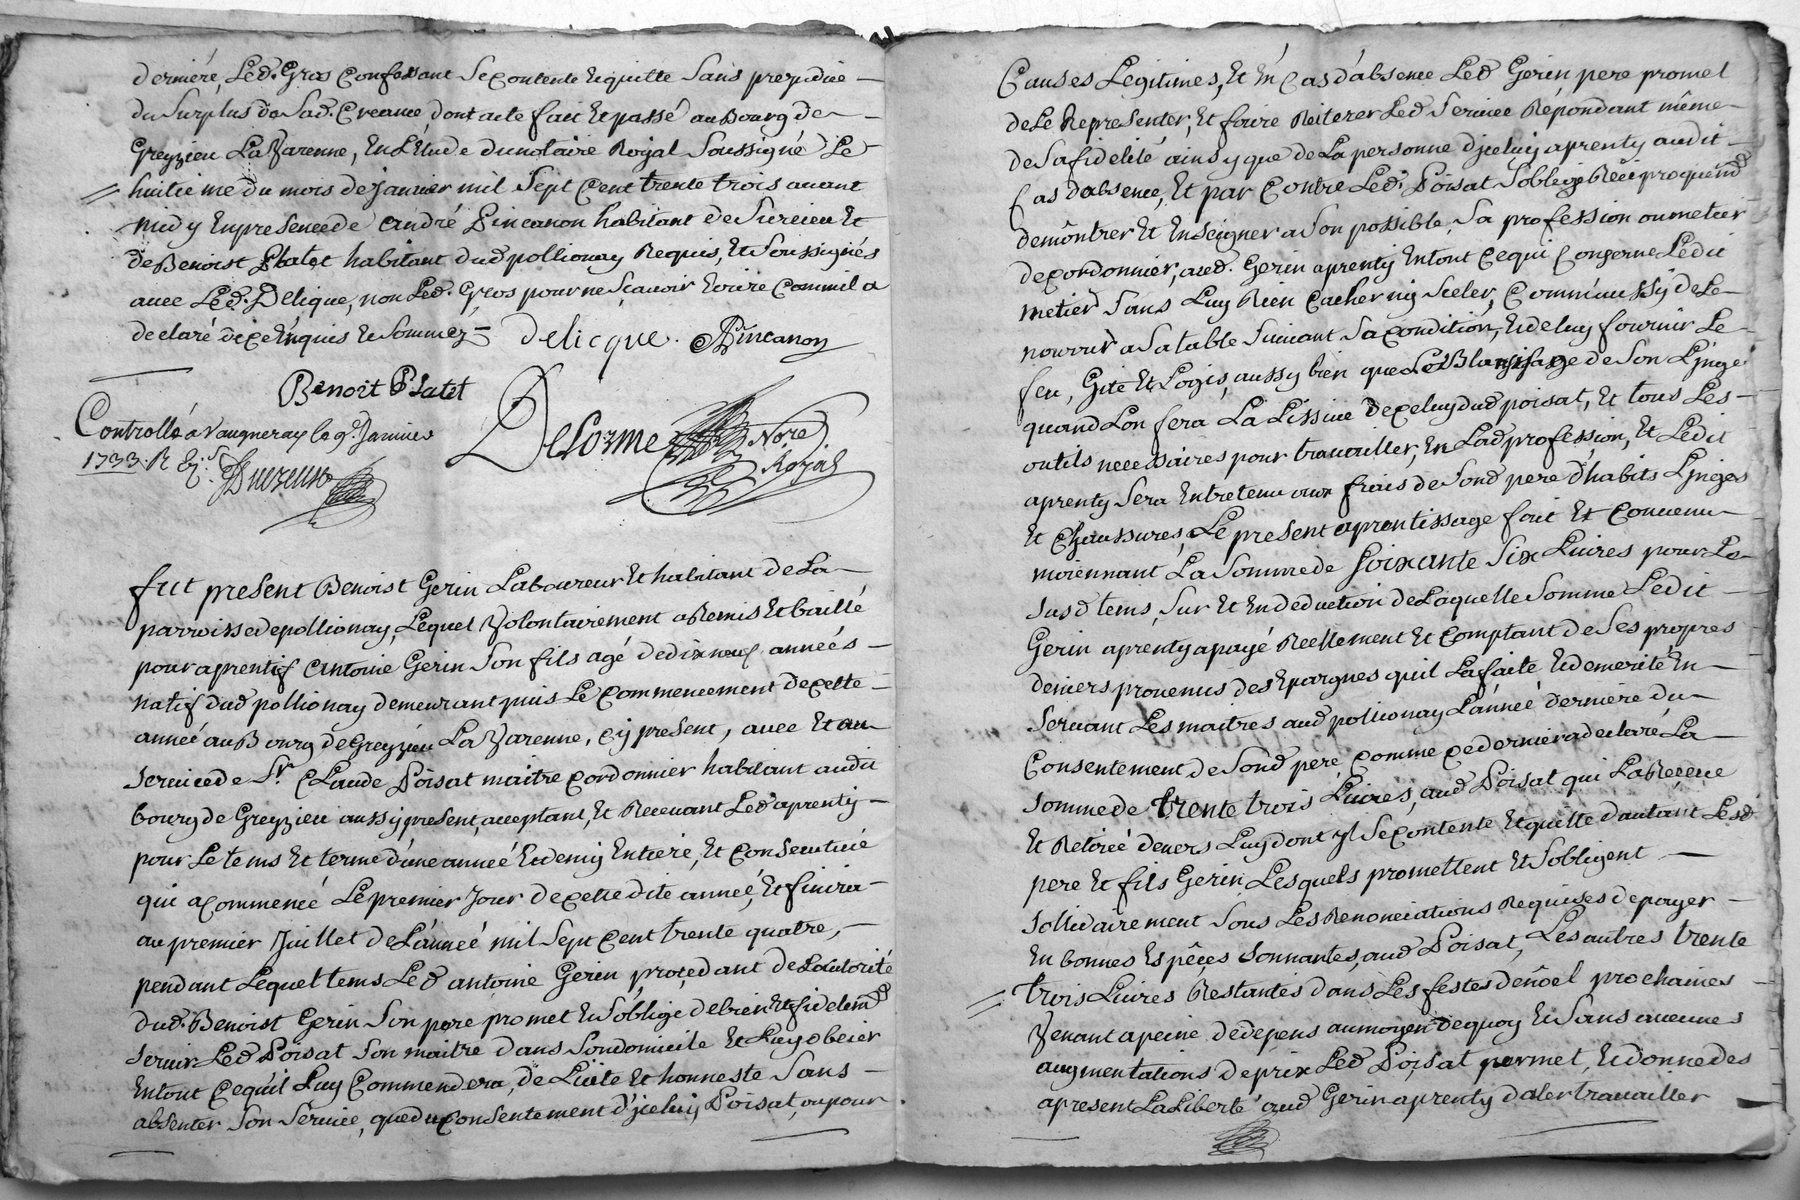 derniere, Led. Gros Confessant Se Contente Et quitte Sans prejudice
du Surplus de Sad. Creance dont acte fait Et passé au Bourg de
Greyzieu La Varenne, En L'Etude du notaire Royal Soussigné Le
huitieme du mois de janvier mil Sept Cent trente trois avant
midy En presence de André Pincanon habitant de Surcieu Et
de Benoist Platet habitant dud pollionay Requis, Et Soussignés
avec Led. Delique, non Led. Gros pour ne Scavoir Ecrire Comm'il a
declaré de ce Enquis Et Sommez
Delicque. APincanon
Benoit Platet
Controllé a Vaugneray le 9e. Janvier
1733. R
Delorme Nore.
Royal
fut present Benoist Gerin Laboureur Et habitant de La
parroisse de pollionay, Lequel Volontairement a Remis Et baillé
pour aprentif Antoine Gerin Son fils agé de dix neuf années
natif dud pollionay demeurant puis Le Commencement de cette
année au Bourg de Greyzieu La Varenne, cy present, avec Et au
service de Sr. Claude Poisat maitre cordonnier habitant audit
bourg de Greyzieu aussy present, acceptant, Et Recevant Led aprenty
pour Le tems Et terme d'une année Et demiy Entiere, Et Consecutive
qui a commencé Le premier Jour de cette dite année, Et finira
au premier Juillet de L'année mil Sept Cent trente quatre,
pendant Lequel tems Led antoine Gerin, procedant de L'autorité
dud. Benoist Gerin Son pere promet Et S'oblige de bien Et fidelemd
servir Led Poisat Son maitre dans Son domicile Et Luy obeir
En tout Ce qu'il Luy Commendera, de Licite Et honneste Sans
absenter Son Service, que du Consentement d'jceluy Poisat, ou pour
Causes Legitimes, Et En Cas d'absence Led Gerin pere promet
de Le Representer, Et faire Reiterer Led Service Répondant même
de Sa fidelité ainsy que de La personne d'jceluy aprenty audit
Cas d'absence, Et par Contre Led. Poisat S'oblige Reciproquemd
demôntrer Et Enseigner a Son possible, Sa profession ou metier
de cordonnier, aud. Gerin aprenty En tout Ce qui Concerne Ledit
metier Sans Luy Rien Cacher ny Sceler, Comm'aussy de Le
nourrir a Sa table Suivant Sa condition, Et de luy fournir Le
feu, Gite Et Logis, aussy bien que Le Blanchissage de Son Ljnge
quand L'on fera La Lissive de celuy dud poisat, Et tous Les
outils necessaires pour travailler, En Lad profession, Et Ledit
aprenty Sera Entretenu aux frais de Sond pere d'habits Ljnges
Et Chaussures, Le present aprentissage fait Et Convenu
moiennant La Somme de Soixante Six Livres pour Le
Susd tems, Sur Et En deduction de Laquelle Somme Ledit
Gerin aprenty a payé Reellement Et Comptant de Ses propres
deniers provenus des Epargnes qu'il La faite Et demerité En
Servant Les maitres aud pollionay L'année derniere du
Consentement de Sond pere Comme ce dernier a declaré La
somme de trente trois Livres, aud Poisat qui La Receue
Et Retirée devers Luy dont Jl Se contente Et quitte d'autant Lesd
pere Et fils Gerin Lesquels promettent Et S'obligent
Sollidairement Sous Les Renonciations Requises de payer
En bonnes Espêces Sonnantes, aud Poisat, Les autres trente
trois Livres Restantes dans Les festes de nôel prochaines
Venant a peine de depens au moyen de quoy Et Sans aucunes
augmentations de prix Led Poisat permet, Et donne des
apresent La Liberté aud Gerin aprenty d'aler travailler